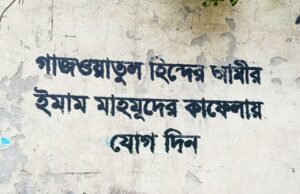 গাজওয়াতুল হিন্দের আমীর
ইমাম মাহমুদের কাফেলায়
যোগ দিন